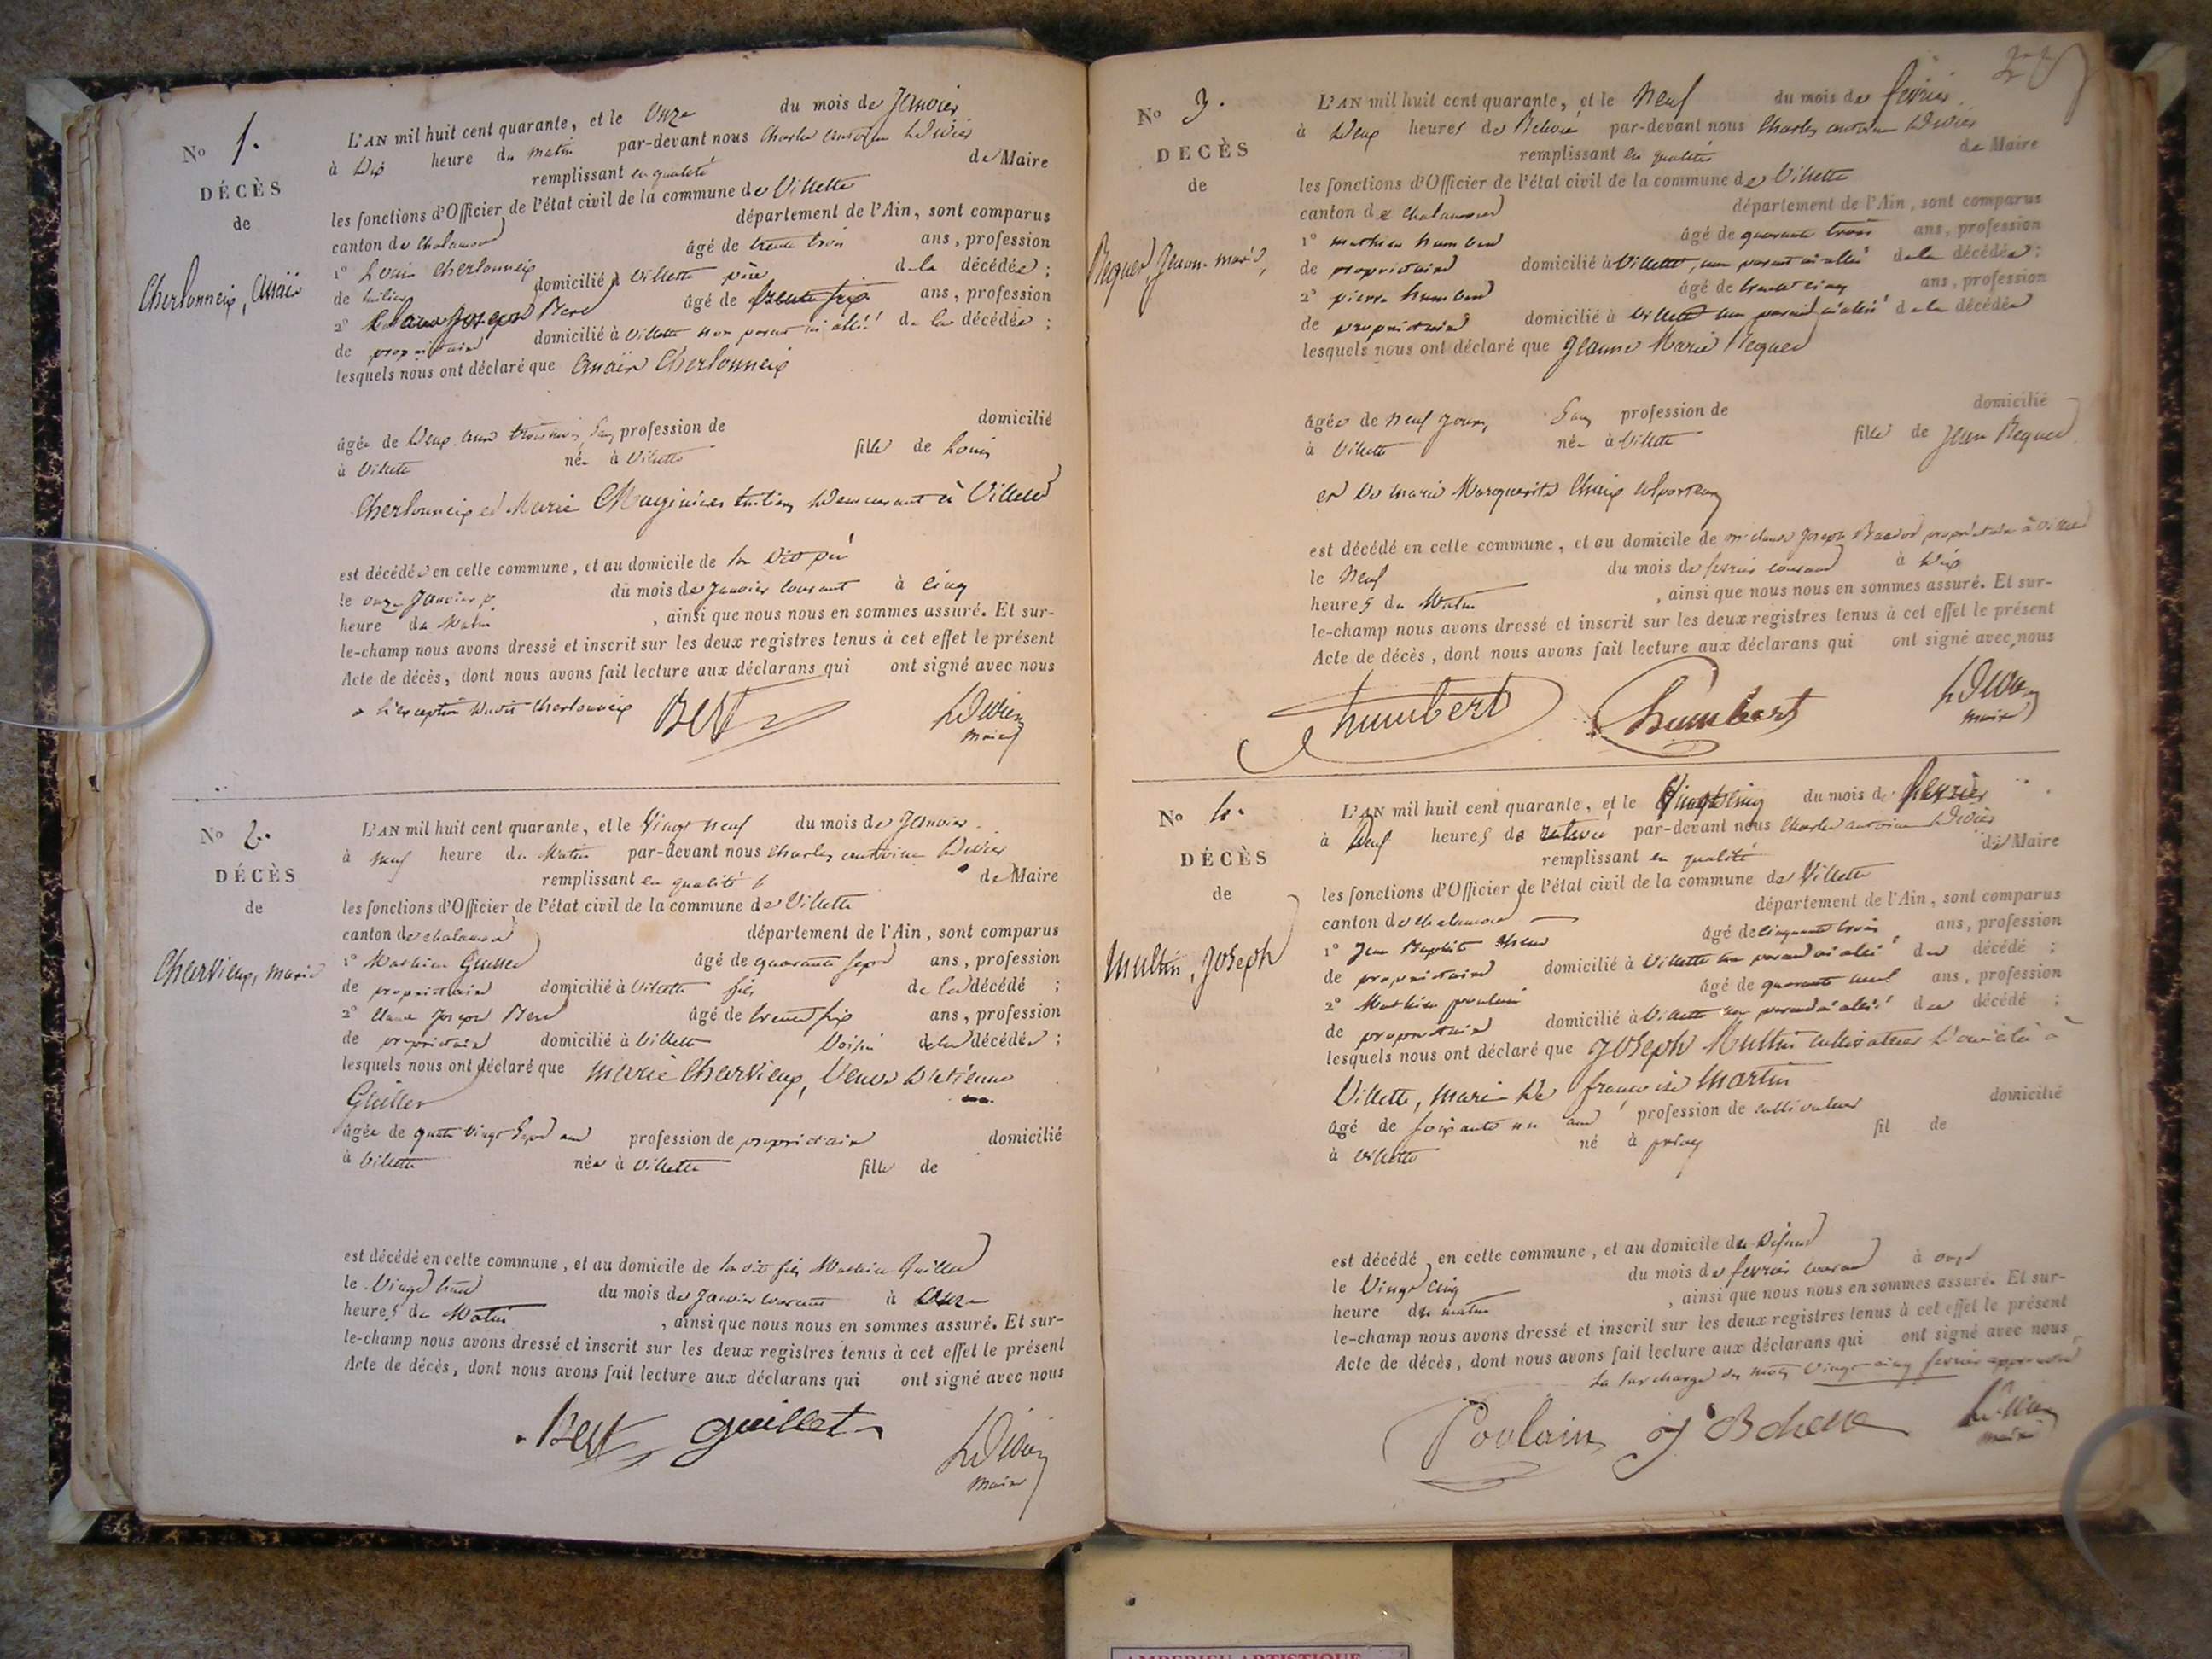 No 1.
DÉCÈS
de
Cherbonneix, Anaïs
L'AN mil huit cent quarante, et le onze du mois de Janvier
à dix heure du matin par-devant nous Charles antoine Dedivier
remplissant en qualité de Maire
les fonctions d'Officier de l'état civil de la commune de Villette
canton de Chalamont département de l'Ain, sont comparus
1° Louis Cherbonneix âgé de trente trois ans, profession
de domicilié à Villette père de la décédée ;
2° Joseph Bert âgé de trente six ans, profession
de propriétaire domicilié à Villette non parent ni allié de la décédée ;
lesquels nous ont déclaré que Anaïs Cherbonneix
âgée de deux ans trois mois, sans profession de domicilié
à Villette née à Villette fille de Louis
Cherbonneix et Marie demeurant à Villette
est décédée en cette commune, et au domicile de son dit père
le onze Janvier du mois de Janvier courant à cinq
heure du Matin , ainsi que nous nous en sommes assuré. Et sur-
le-champ nous avons dressé et inscrit sur les deux registres tenus à cet effet le présent
Acte de décès, dont nous avons fait lecture aux déclarans qui ont signé avec nous
à l'exception dudit Cherbonneix Bert
maire
No 2.
DÉCÈS
de
Chervieux, Marie
L'AN mil huit cent quarante, et le Vingt neuf du mois de Janvier
à neuf heure du Matin par-devant nous Charles antoine
remplissant en qualité de Maire
les fonctions d'Officier de l'état civil de la commune de Villette
canton de chalamont département de l'Ain, sont comparus
1° Mathieu Guillet âgé de quarante sept ans, profession
de propriétaire domicilié à Villette fils de la décédé ;
2° Claude Joseph Bert âgé de trente six ans, profession
de propriétaire domicilié à Villette Voisin de la décédée ;
lesquels nous ont déclaré que Marie Chervieux, Veuve d'etienne
Guillet
âgée de quatre vingt sept ans profession de propriétaire domicilié
à Villette née à Villette fille de
est décédé en cette commune, et au domicile de son dit fils Mathieu Guillet
le Vingt huit du mois de Janvier courant à onze
heures du Matin , ainsi que nous nous en sommes assuré. Et sur-
le-champ nous avons dressé et inscrit sur les deux registres tenus à cet effet le présent
Acte de décès, dont nous avons fait lecture aux déclarans qui ont signé avec nous
Bert guillet
maire
No 3.
DÉCÈS
de
Jeanne Marie
L'AN mil huit cent quarante, et le Neuf du mois de février
à deux heures de Relevée par-devant nous Charles antoine
remplissant en qualité de Maire
les fonctions d'Officier de l'état civil de la commune de Villette
canton de Chalamont département de l'Ain, sont comparus
1° Mathieu humbert âgé de quarante trois ans, profession
de propriétaire domicilié à Villette, non parent ni allié de la décédée ;
2° pierre humbert âgé de trente cinq ans, profession
de propriétaire domicilié à Villette non parent ni allié de la décédée
lesquels nous ont déclaré que Jeanne Marie
âgée de neuf jours, sans profession de domicilié
à Villette née à Villette fille de Jean
et de Marie Marguerite Chaix colporteurs
est décédé en cette commune, et au domicile de Mr claude Joseph propriétaire à Villette
le Neuf du mois de février courant à dix
heures du Matin , ainsi que nous nous en sommes assuré. Et sur-
le-champ nous avons dressé et inscrit sur les deux registres tenus à cet effet le présent
Acte de décès, dont nous avons fait lecture aux déclarans qui ont signé avec nous
humbert humbert
maire
No 4.
DÉCÈS
de
Multin, Joseph
L'AN mil huit cent quarante, et le Vingt cinq du mois de février
à heures de relevée par-devant nous Charles antoine
remplissant en qualité de Maire
les fonctions d'Officier de l'état civil de la commune de Villette
canton de Chalamont département de l'Ain, sont comparus
1° Jean Baptiste âgé de cinquante trois ans, profession
de propriétaire domicilié à Villette non parent ni allié du décédé ;
2° Mathieu poulain âgé de quarante neuf ans, profession
de propriétaire domicilié à Villette non parent ni allié du décédé ;
lesquels nous ont déclaré que Joseph Multin cultivateur domicilié à
Villette, mari de françoise Martin
âgé de soixante un ans profession de cultivateur domicilié
à Villette né à priay fil de
est décédé en cette commune, et au domicile du défunt
le Vingt cinq du mois de février courant à onze
heure du matin , ainsi que nous nous en sommes assuré. Et sur-
le-champ nous avons dressé et inscrit sur les deux registres tenus à cet effet le présent
Acte de décès, dont nous avons fait lecture aux déclarans qui ont signé avec nous
la surcharge des mots Vingt cinq février approuvée
Poulain
maire
AMBERIEU ARTISTIQUE